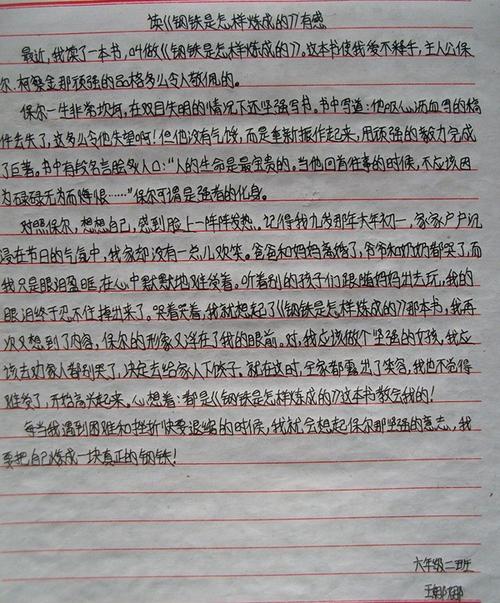 读《钢铁是怎样炼成的》有感
最近，我读了一本书，叫做《钢铁是怎样炼成的》。这本书使我爱不释手，主人公保
尔.柯察金那顽强的品格多么令人敬佩的。
保尔一生非常坎坷，在双目失明的情况下还坚强写书。书中写道：他呕心沥血写的稿
件丢失了，这多么令他失望啊！但他没有气馁，而是重新振作起来，用顽强的毅力完成
了巨著。书中有段名言脍炙人口：“人的生命是最宝贵的。当他回首往事的时候，不应该因
为碌碌无为而悔恨……”保尔可谓是强者的化身。
对照保尔，想想自己，感到脸上一阵阵发热。记得我九岁那年大年初一，家家户户沉
浸在节日的气气中，我家却没有一点儿欢笑。爸爸和妈妈离婚了，爷爷和奶奶都哭了，而
我只是眼泪盈眶在心中默默地难受着。听着别的孩子们跟随妈妈出去玩，我的
眼泪终于忍不住掉出来了。哭着哭着，我就想起了《钢铁是怎样炼成的》那本书，我再
次又想到了内容，保尔的形象又浮在了我的眼前。对，我应该做个坚强的女孩，我应
该去劝家人都别哭了，决定去给家人下饺子。就在这时，全家都露出了笑容，我也不觉得
难受了，开始高兴起来。心想着：都是《钢铁是怎样炼成的》这本书教会我的！
每当我遇到困难和挫折快要退缩的时候，我就会想起保尔那坚强的意志，我
要把自己炼成一块真正的钢铁！
六年级二班
王娜娜